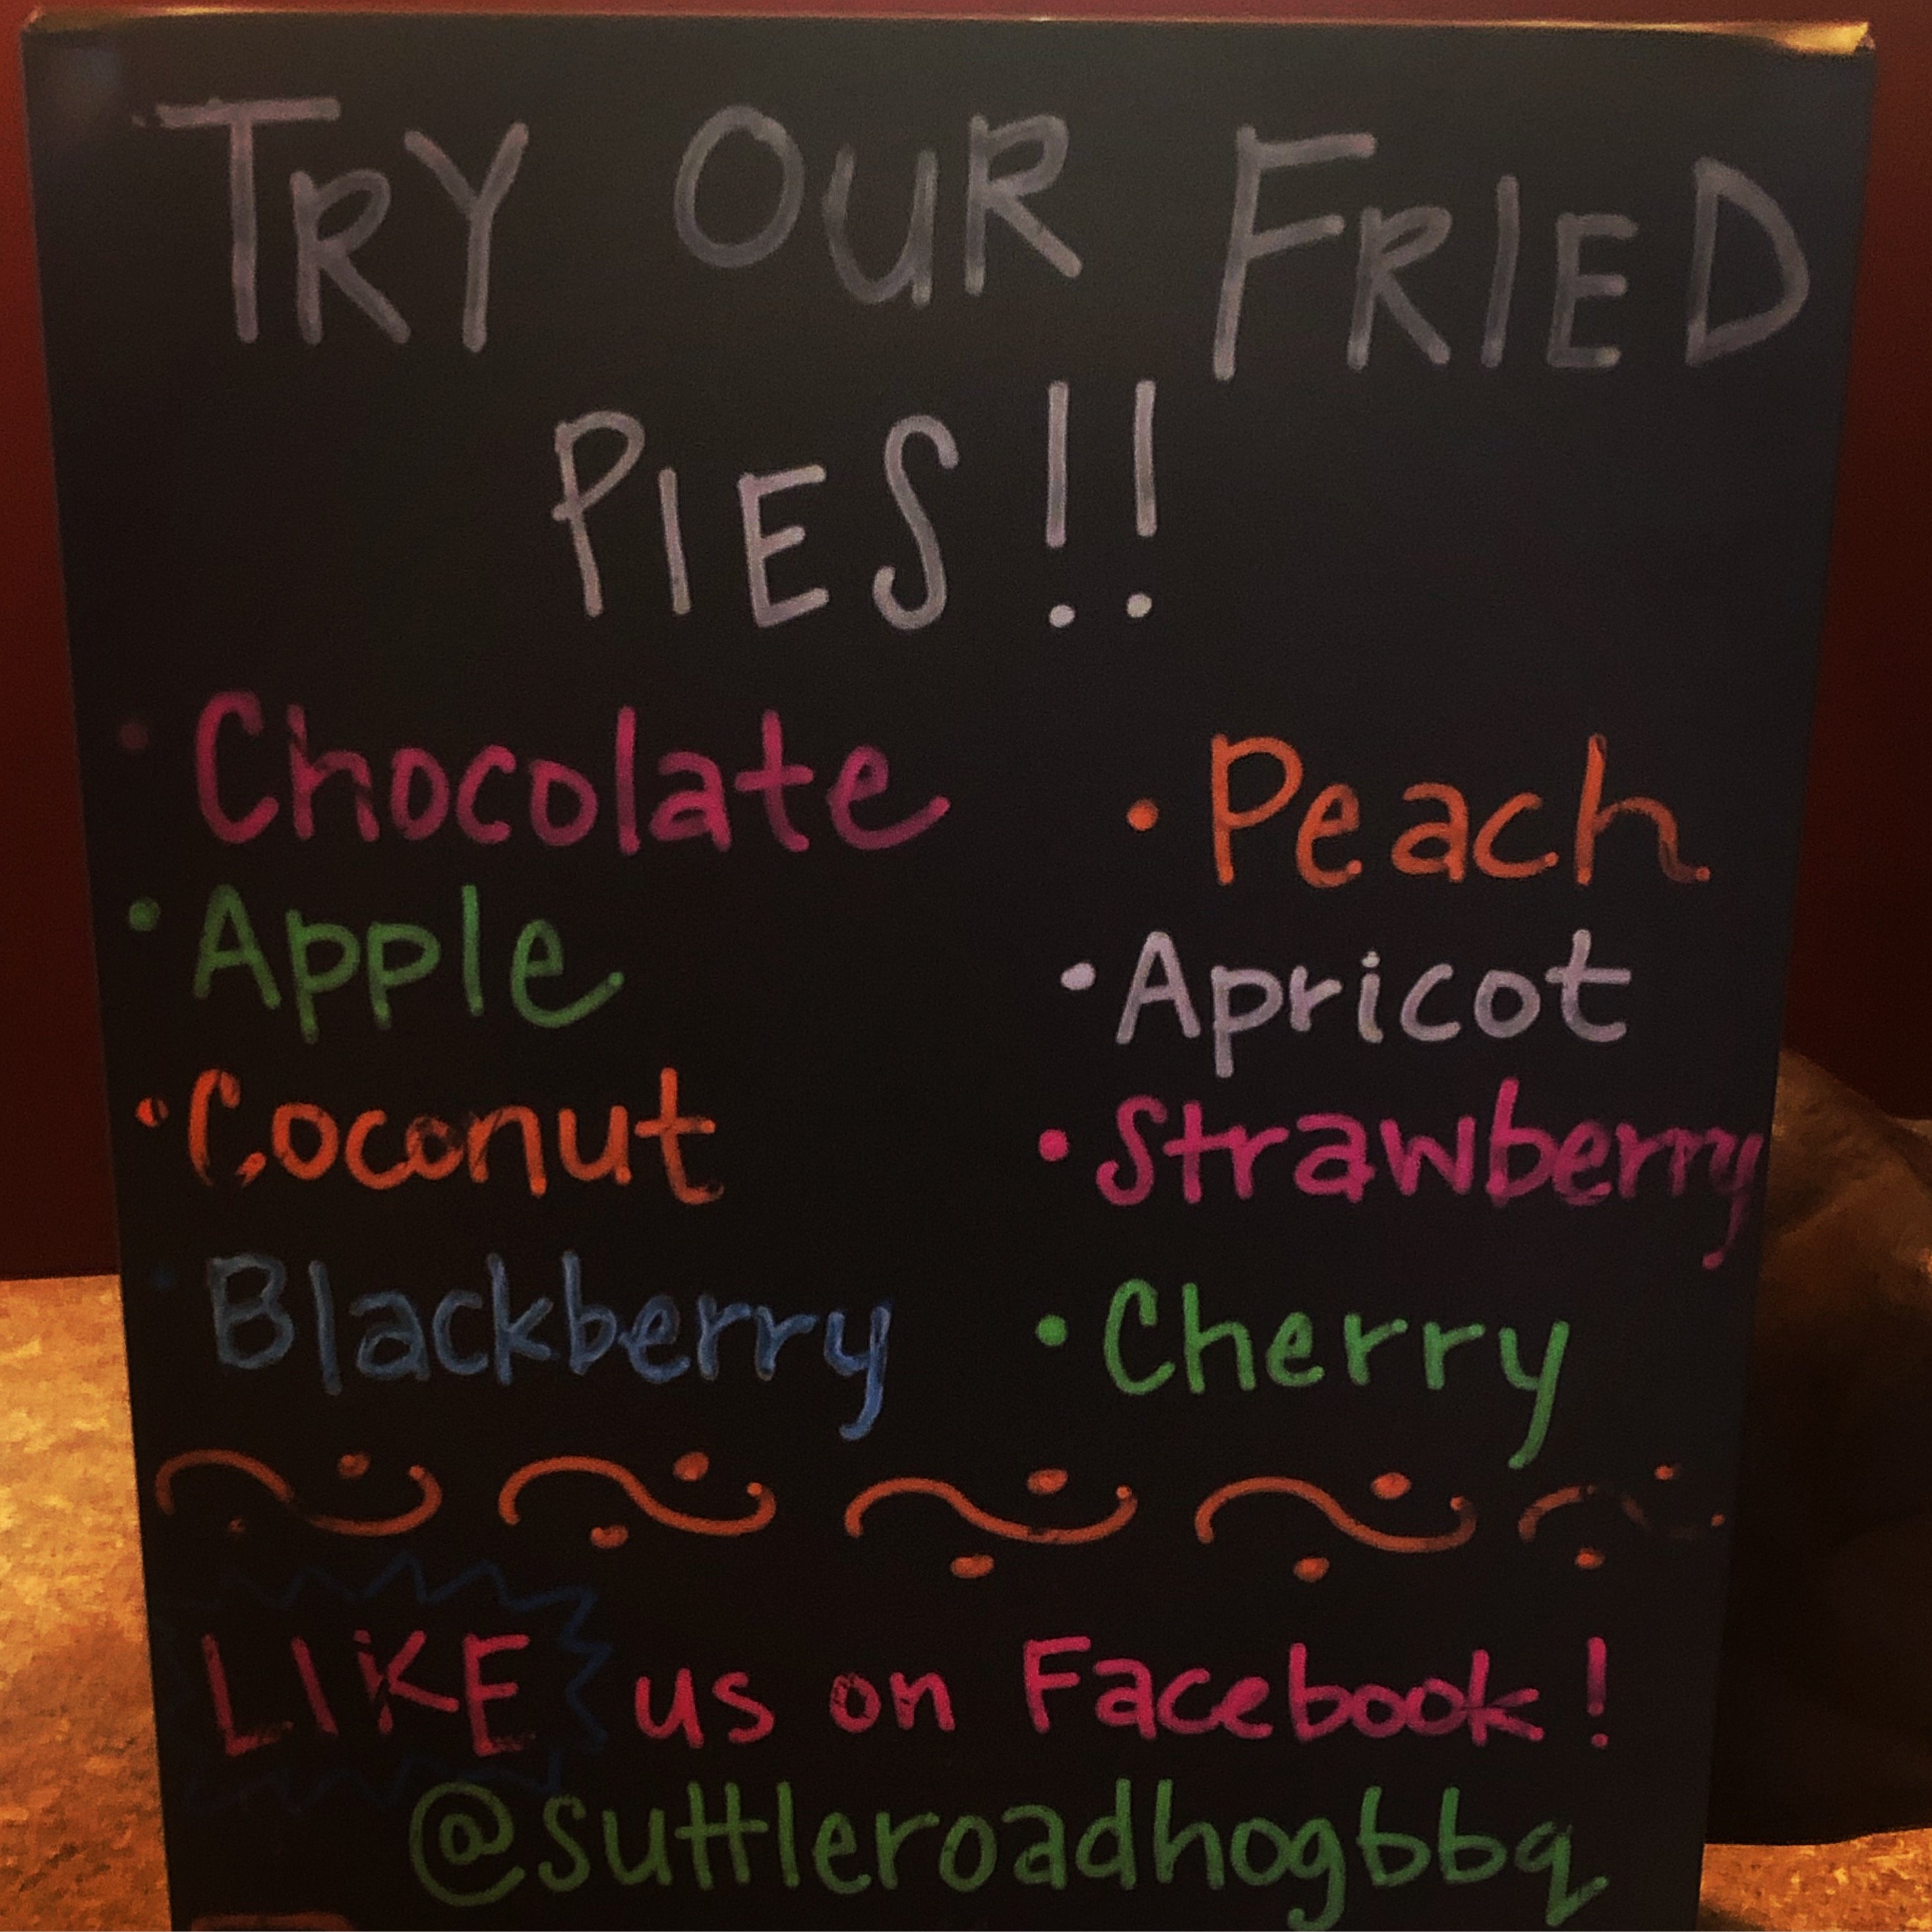 TRY OUR FRIED
PIES!!
• Chocolate
• Apple
• Coconut
• Blackberry
• Peach
• Apricot
• Strawberry
• Cherry
LIKE us on Facebook!
@suttleroadhogbbq